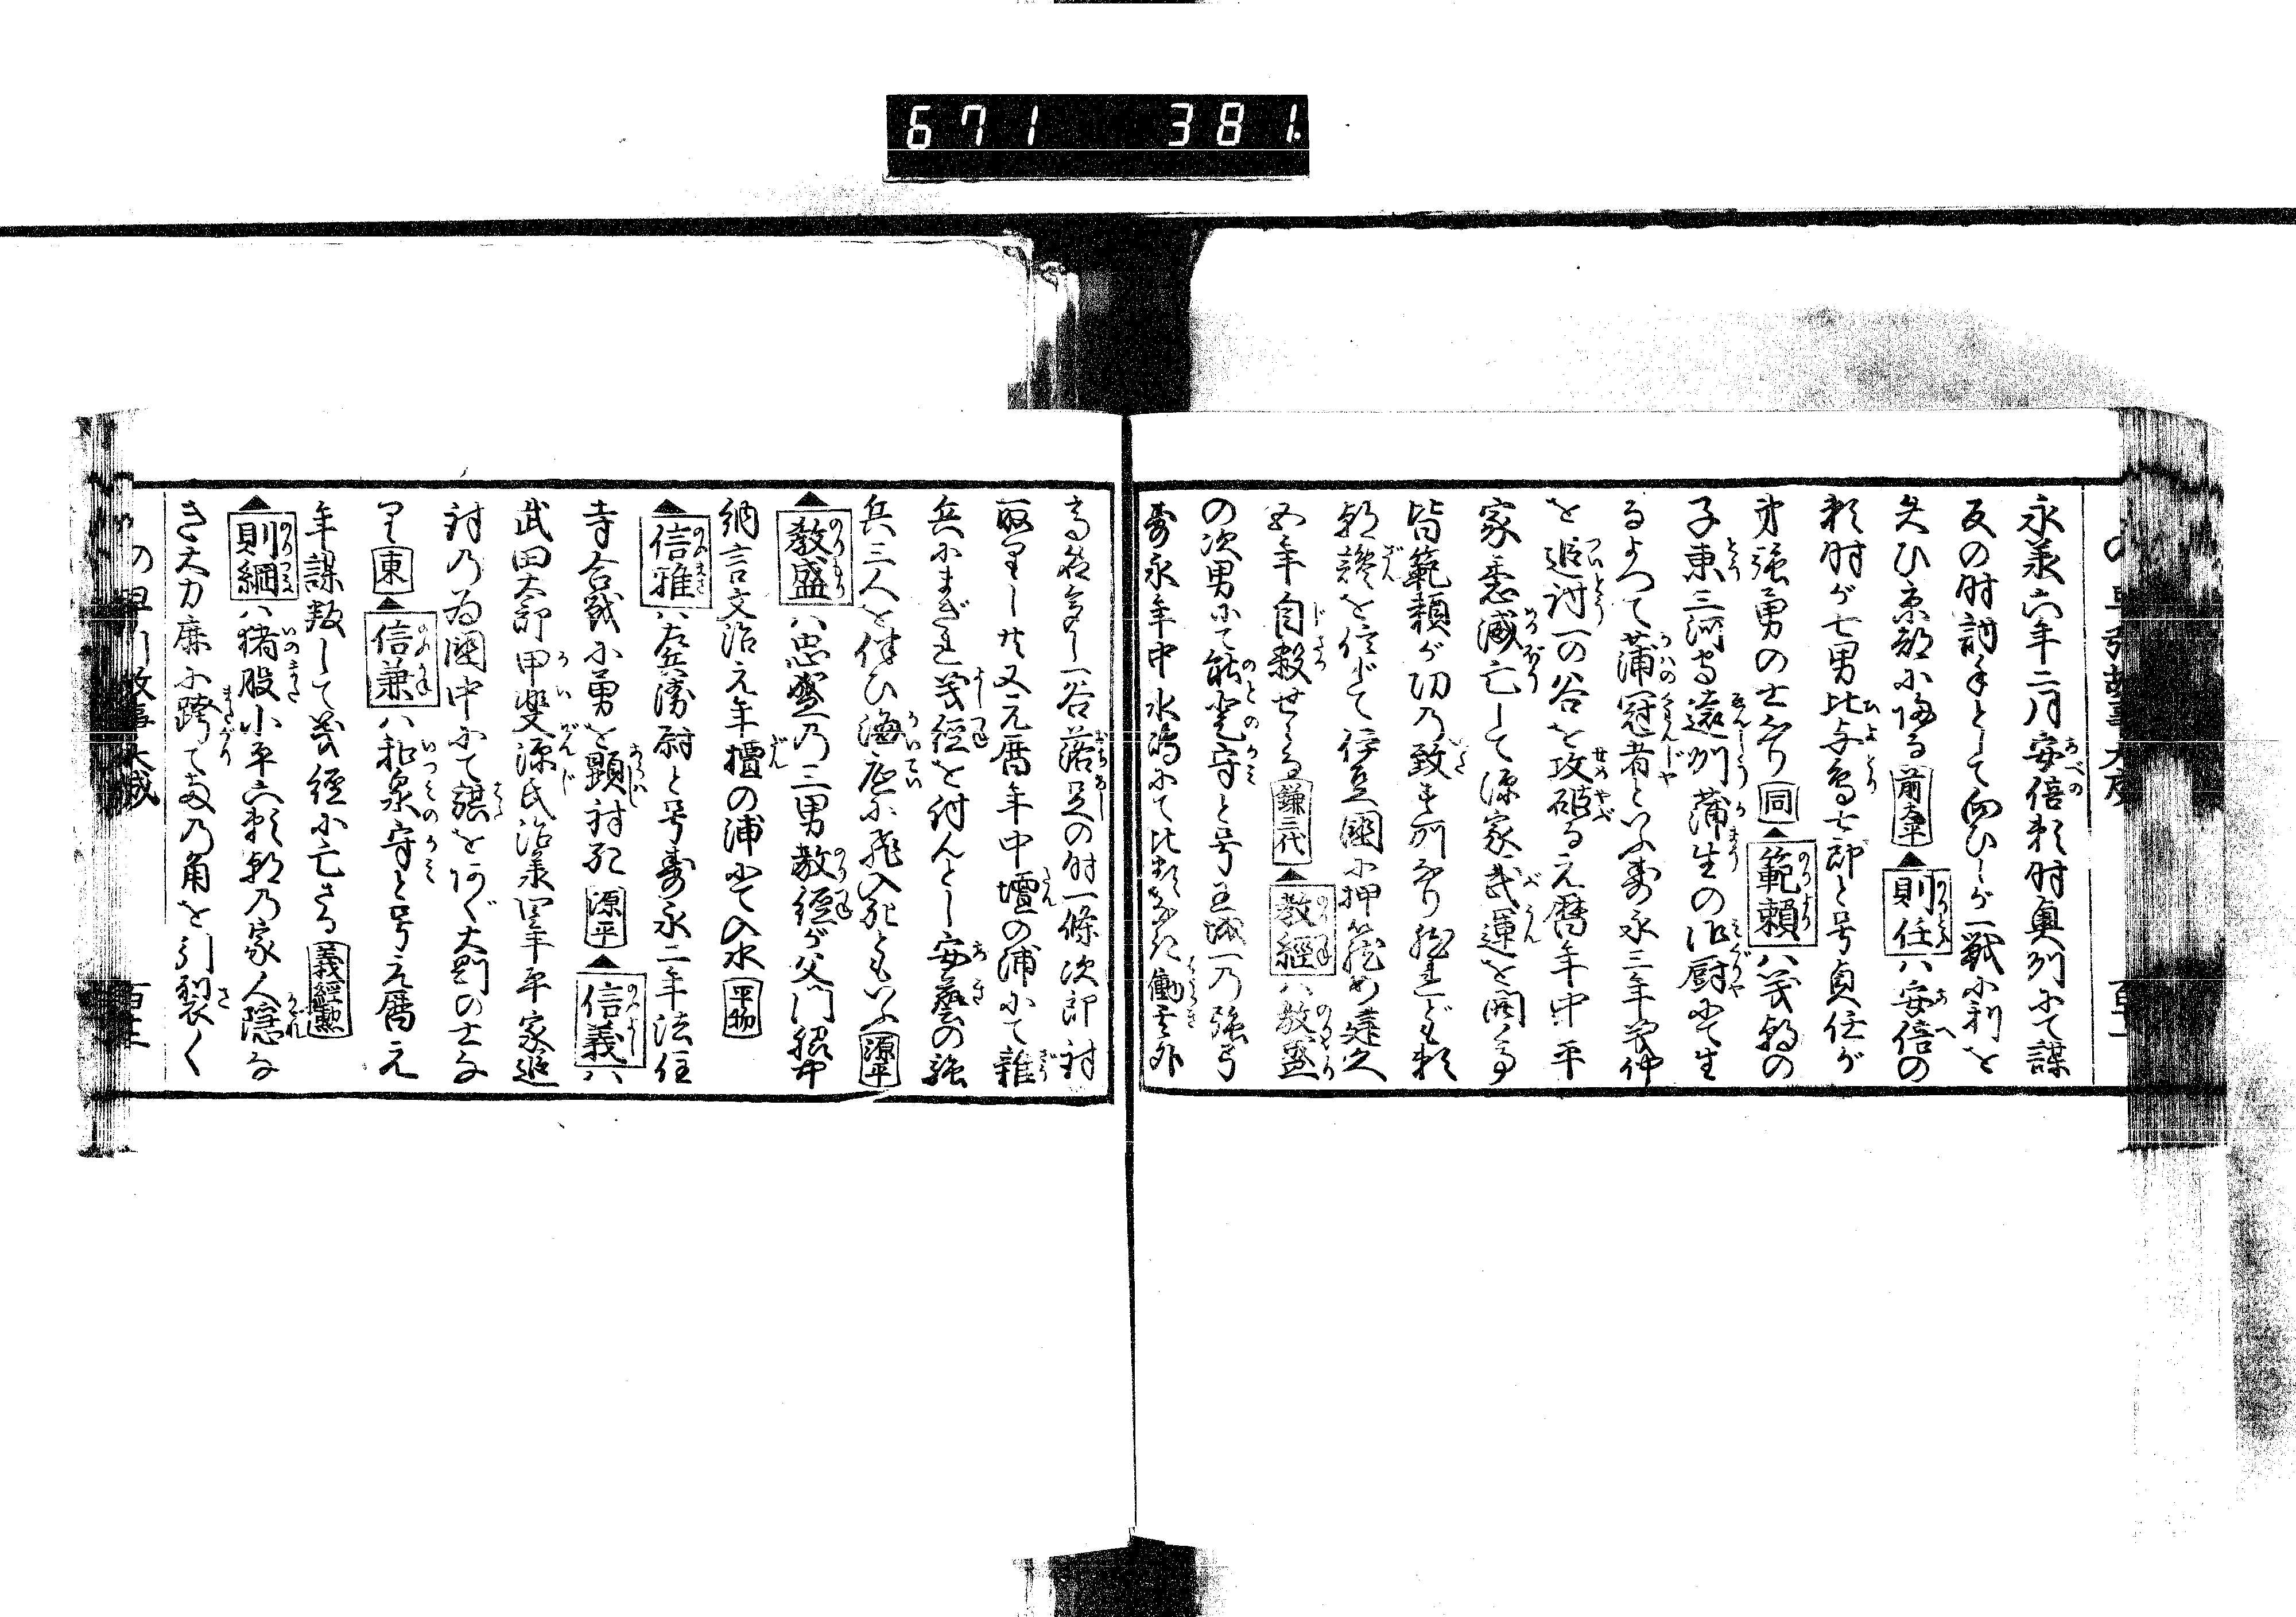 671 381
永承六年二月安倍頼時奥州にて謀
反の時討手として向ひしが一戦に利を
失ひ京都に帰る 前太平 ▲則任ハ安倍の
頼時が七男比与鳥七郎と号貞任が
弟強勇の士なり 同 ▲範頼ハ義朝の
子東三河守遠州蒲生の御厨にて生
るよつて蒲冠者といふ寿永三年義仲
を追討一の谷を攻破る元暦年中平
家悉滅亡して源家武運を開く事
皆範頼が功の致す所なり然れども頼
朝讒を信じて伊豆国に押籠め建久
四年自殺せらる 鎌三代 ▲教経ハ教盛
の次男にて能登守と号王城一の強弓
寿永年中水嶋にて比類なき働其外
高名多し一谷落足の時一條次郎討
取しし又元暦年中壇の浦にて雑
兵にまぎれ義経を付んとし安藝の強
兵三人を伴ひ海底に飛入死ともいふ 源平
▲教盛ハ忠盛の二男教経が父門脇中
納言文治元年壇の浦にて入水 平物
▲信雅ハ左兵衛尉と号寿永二年法住
寺合戦に勇を顕討死 源平 ▲信義ハ
武田太郎甲斐源氏治承四年平家追
討の為国中にて旗をあぐ大剛の士な
り 東 ▲信兼ハ和泉守と号元暦元
年謀叛して義経に亡さる 義経勲
▲則綱ハ猪股小平六頼朝の家人隠な
き大力鹿に跨て両の角を引裂く
の 早引故事大成